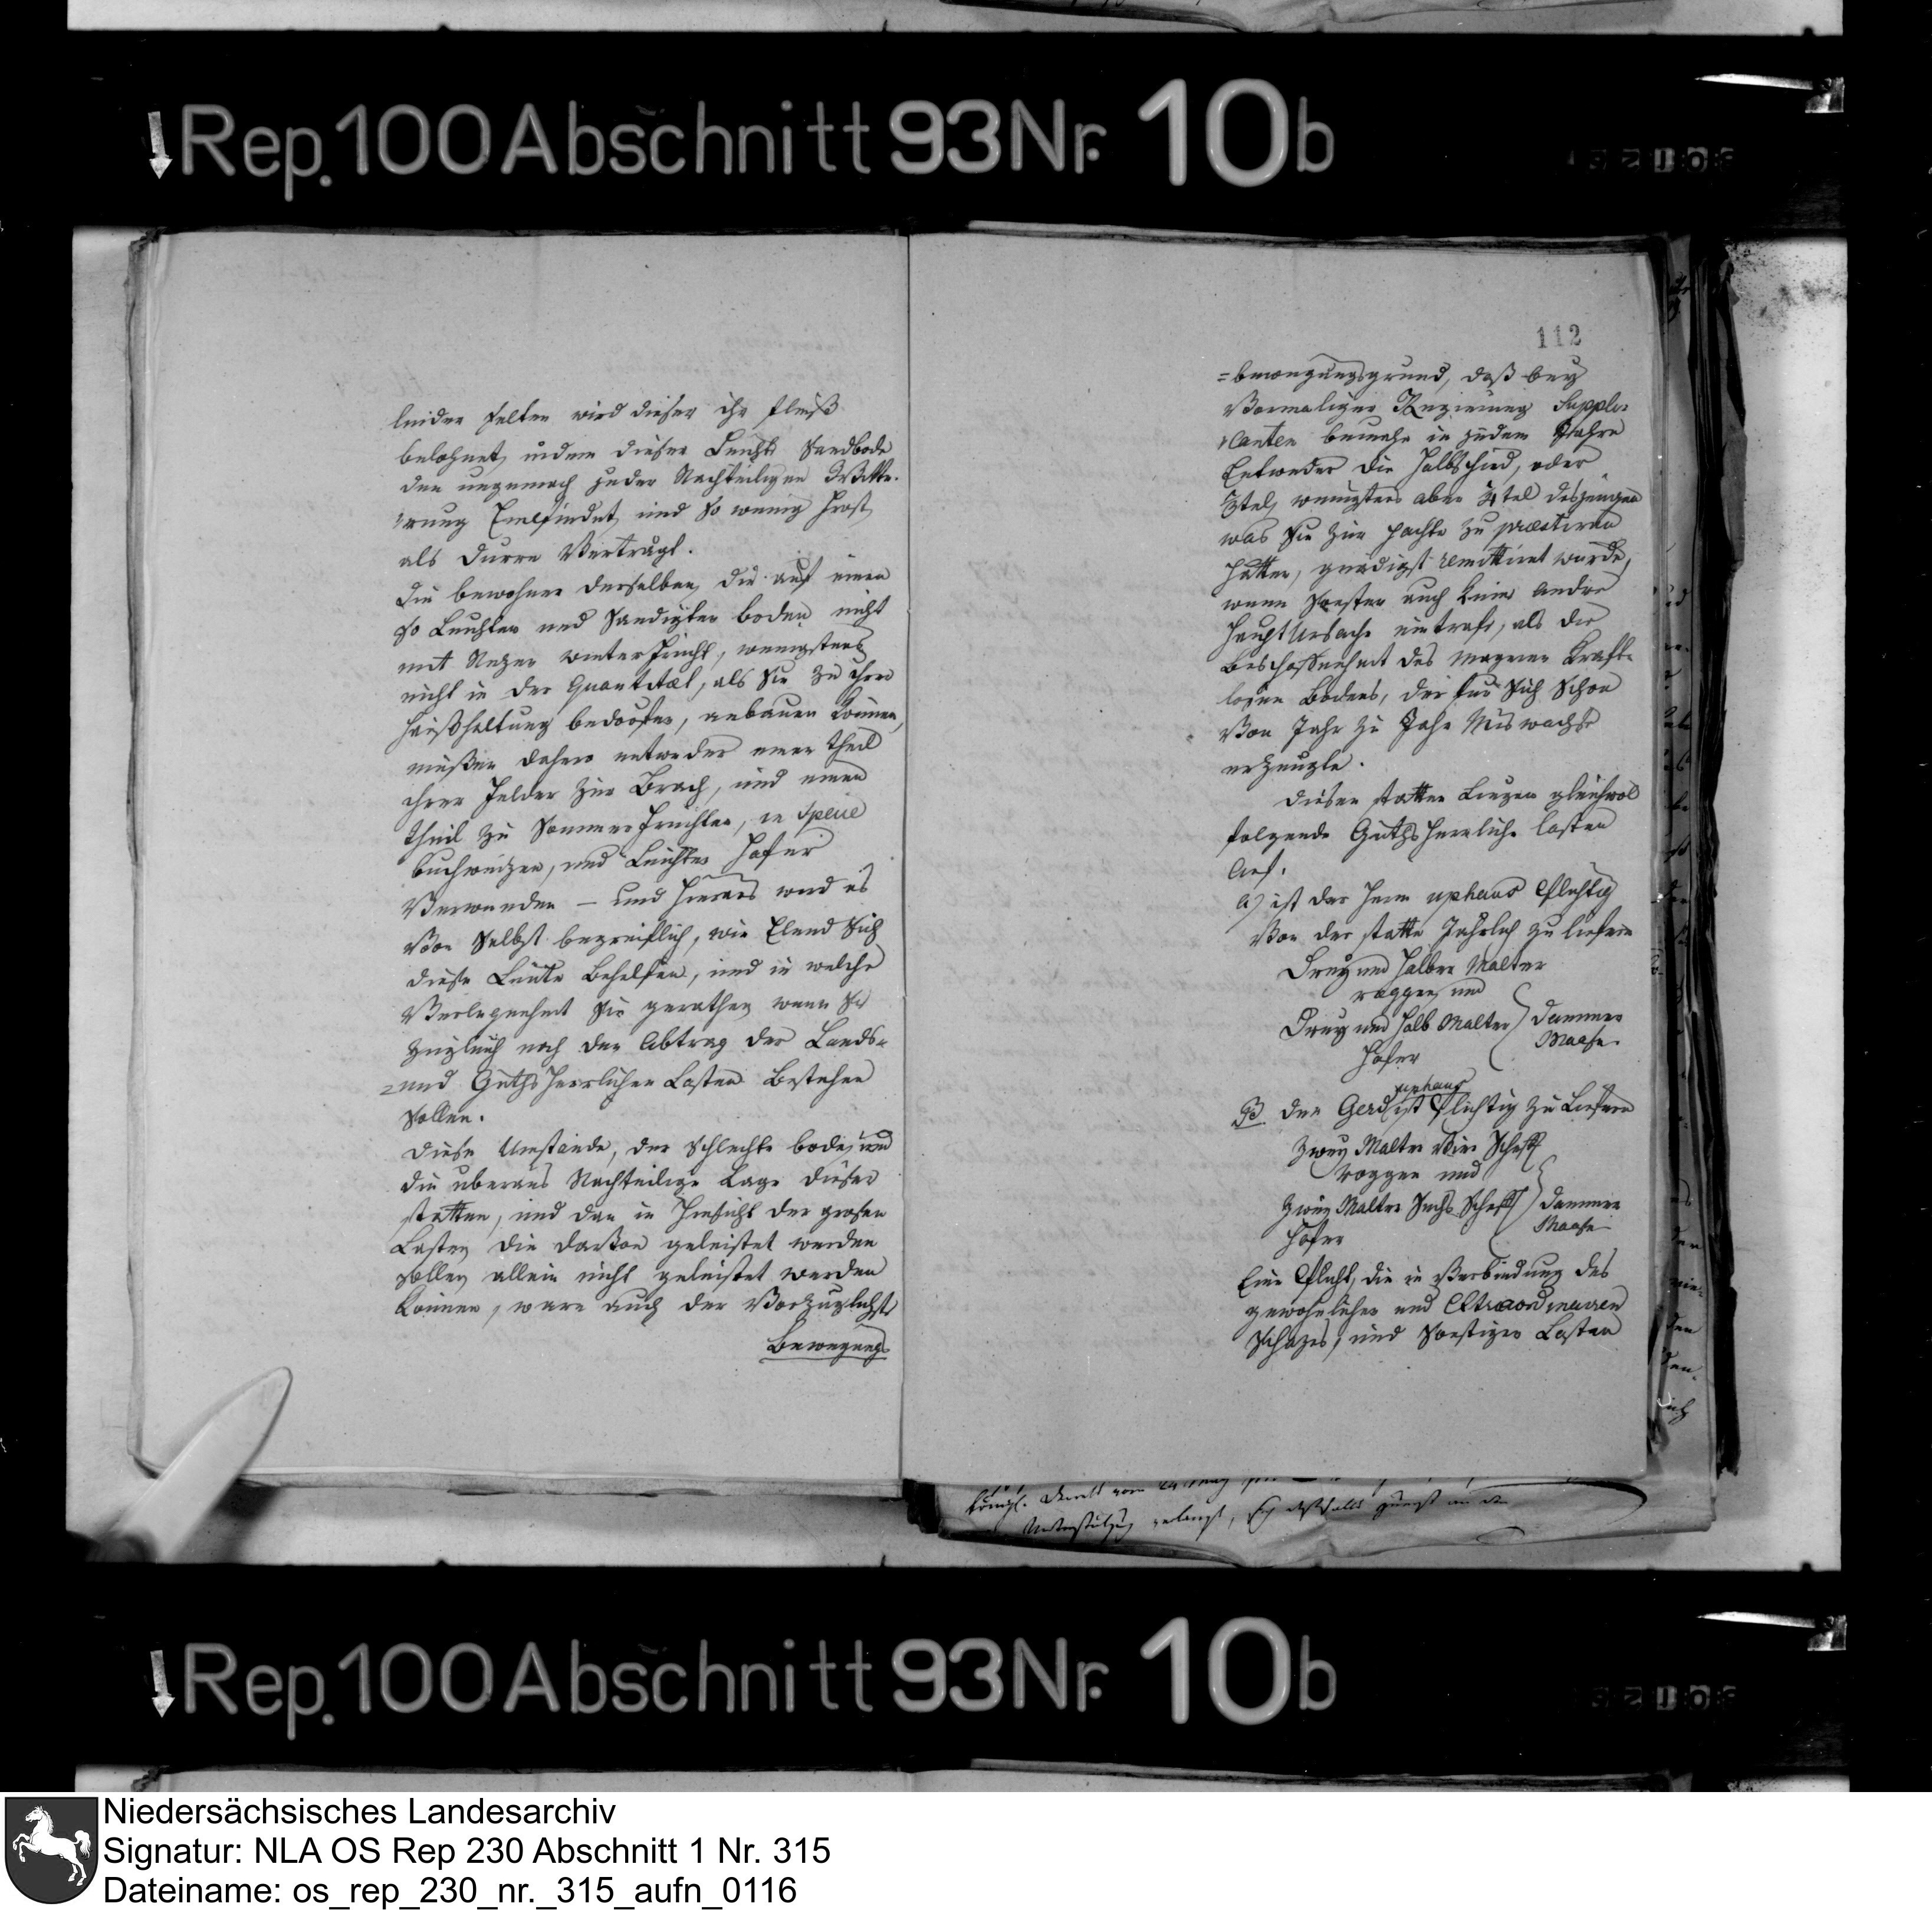 Rep. 100 Abschnitt 93 Nr. 10b
leider selten wird dieser ihr fleiß
belohnet, indem dieser leicht Sandbode
den ungemach jeder Nachteiligen Witte-
rung Emefindet, und so wenig Frost,
als durre Verträgt.
Die bewohner derselben, die auf einen
so leuchten und Sandigten boden nicht
mit Nuzen winterfrucht, wenigstens
nicht in der Quantitæt, als Sie zu ihrer
Haußhaltung bedorfen, anbauen können,
müßen dahero entweder einen theil
ihrer Felder zur Brach, und einen
theil zu Sommerfruchten, in Specie
buchweizen, und leichten Hafer
Verwenden – und hieraus wird es
Von Selbst begreiflich, wie Elend Sich
diese Leute Behelfen, und in welche
Verlegenheit Sie gerathen wenn Sie
zugleich noch den Abtrag der Lands-
und Guthsherrlichen Lasten Bestehen
sollen.
Diese Umstände, der Schlechte bode, und
die uberaus Nachteilige Lage dieser
stetten, und dan in Hinsicht der grosen
Lasten die davon geleistet werden
sollen, allein nicht geleistet werden
können, ware auch der Vorzuglichste
Bewegungs
112
=bewegungsgrund, daß bey
Vormaliger Regierung Suppli-
canten beinahe in jedem Jahre
Entweder die Halbschied, oder
3tel, wenigstens aber 4tel desjenigen
was Sie zur pachte zu præstiren
hatten, gnädigst remittiret wurde,
wenn sonsten auch keine andre
Haupt Ursache eintrafe, als die
Beschaffenheit des mageren Kraft-
losen Bodens, der fur sich Schon
Von Jahr zu Jahr Miswachse
erzeugte.
Diesen statten liegen gleichwol
folgende Guthsherrliche lasten
Auf.
a) ist der Herm uphaus Pflichtig
Von der statte Jährlich zu liefern
Drey und halbe Malter
roggen, und
Drey und halb Malter Dammer
Hafer Maase.
B der Gerd uphaus ist Pflichtig zu Liefern
Zwey Malter Vier Scheff
roggen und
Zwey Malter Sechs Scheff Dammer
Hafer Maase
Eine Pflicht, die in Verbindung des
gewohnlichen und Extraordinairen
Schazes, und Sonstigen Lasten
Rep. 100 Abschnitt 93 Nr. 10b
Niedersächsisches Landesarchiv
Signatur: NLA OS Rep 230 Abschnitt 1 Nr. 315
Dateiname: os_rep_230_nr._315_aufn_0116